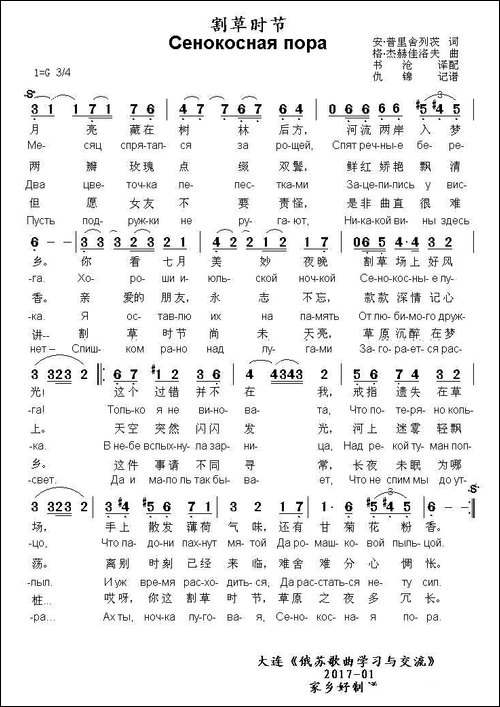 割草时节
Сенокосная пора
1=G 3/4
安·普里舍列茨 词
格·杰赫佳洛夫 曲
书沧 译配
仇锦 记谱
3 1 1 7 1 7 6 7 6 4 0 6 6 6 #5 #4 5
月亮藏在树林后方， 河流两岸入梦
Ме- сяц спря-тал- ся за ро-щей, Спят реч-ны-е бе-ре-
两瓣玫瑰点缀双鬓， 鲜红娇艳飘清
Два цве- точ-ка ле- пест-ка-ми За-це-пи-лись у вис-
但愿女友不要责怪， 是非曲直很难
Пусть под- руж-ки не ру- га-ют, Ни-ка-кой ви-ны здесь
6 - - 3 3 2 3 2 1 4 2 2 1 2 0 6 5 4· 4 3 2
乡。 你看七月美妙夜晚， 割草场上好风
-га. Хо- ро- ши и-юль- ской ноч-кой Се-но-кос-ны-е лу-
香。 亲爱的朋友，永志不忘， 款款深情记心
-ка. Я ос-тав-лю их на па-мять От лю-би-мо-го друж-
讲—— 割草时节尚未天亮， 草原沉醉在梦
нет – Слиш- ком ра-но над лу- га-ми За-го-ра-ет-ся рас-
3 3 2 3 2 6 7 #1 2 3 4 4343 2 2 4 3 2
光！ 这个过错并不在我， 戒指遗失在草
-га! Толь-ко я не ви-но-ва- та, Что по-те-ря-но коль-
上。 天空突然闪闪发光， 河上迷雾轻飘
-ка. В не-бе вспых-ну-ла зар-ни- ца, Над ре-кой ту-ман пол-
乡。 这件事请不同寻常， 长夜未眠为哪
-свет. Да и ма-поль так бы-ва- ет, Что не спим мы до ут-
3 3 2 3 2
场， 手上散发薄荷气味，还有甘菊花粉香。
-цо, Что ла-до-ни пах-нут мя-той Да ро-маш-ко-вой пыль-цой.
荡。 离别时刻已经来临，难舍难分心惆怅。
-пыл. И уж вре-мя рас-хо-дить-ся, Да рас-стать-ся не- ту сил.
桩… 哎呀，你这割草时节，草原之夜多冗长。
-ра... Ах ты, ноч-ка лу-го-ва-я, Се-но-кос-на-я по- ра.
大连《俄苏歌曲学习与交流》
2017-01
家乡好制